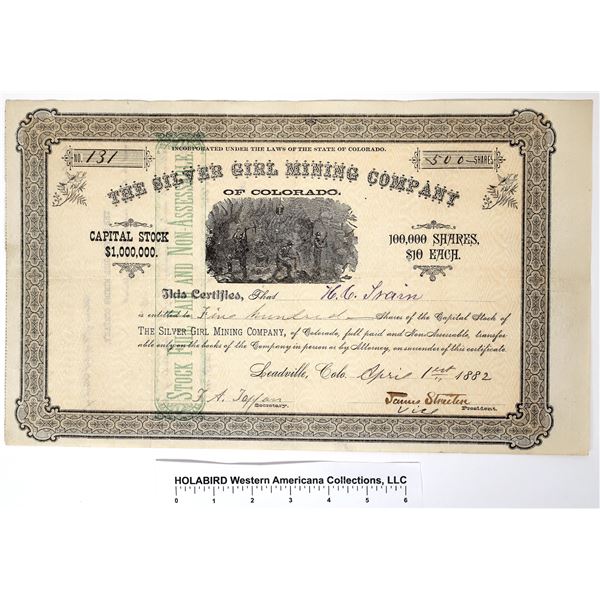 INCORPORATED UNDER THE LAWS OF THE STATE OF COLORADO.
NO. 131
500 SHARES
THE SILVER GIRL MINING COMPANY
OF COLORADO.
CAPITAL STOCK
$1,000,000.
100,000 SHARES,
$10 EACH.
This Certifies, That H. C. Train
is entitled to Five hundred Shares of the Capital Stock of
THE SILVER GIRL MINING COMPANY, of Colorado, full paid and Non-Assessable, transfer
able only on the books of the Company in person or by Attorney, on surrender of this certificate.
Leadville, Colo. April 1st 1882
T. A. Tappan
Secretary.
James Streeter
Vice President.
STOCK AND NON-ASSESSABLE
HOLABIRD Western Americana Collections, LLC
0 1 2 3 4 5 6